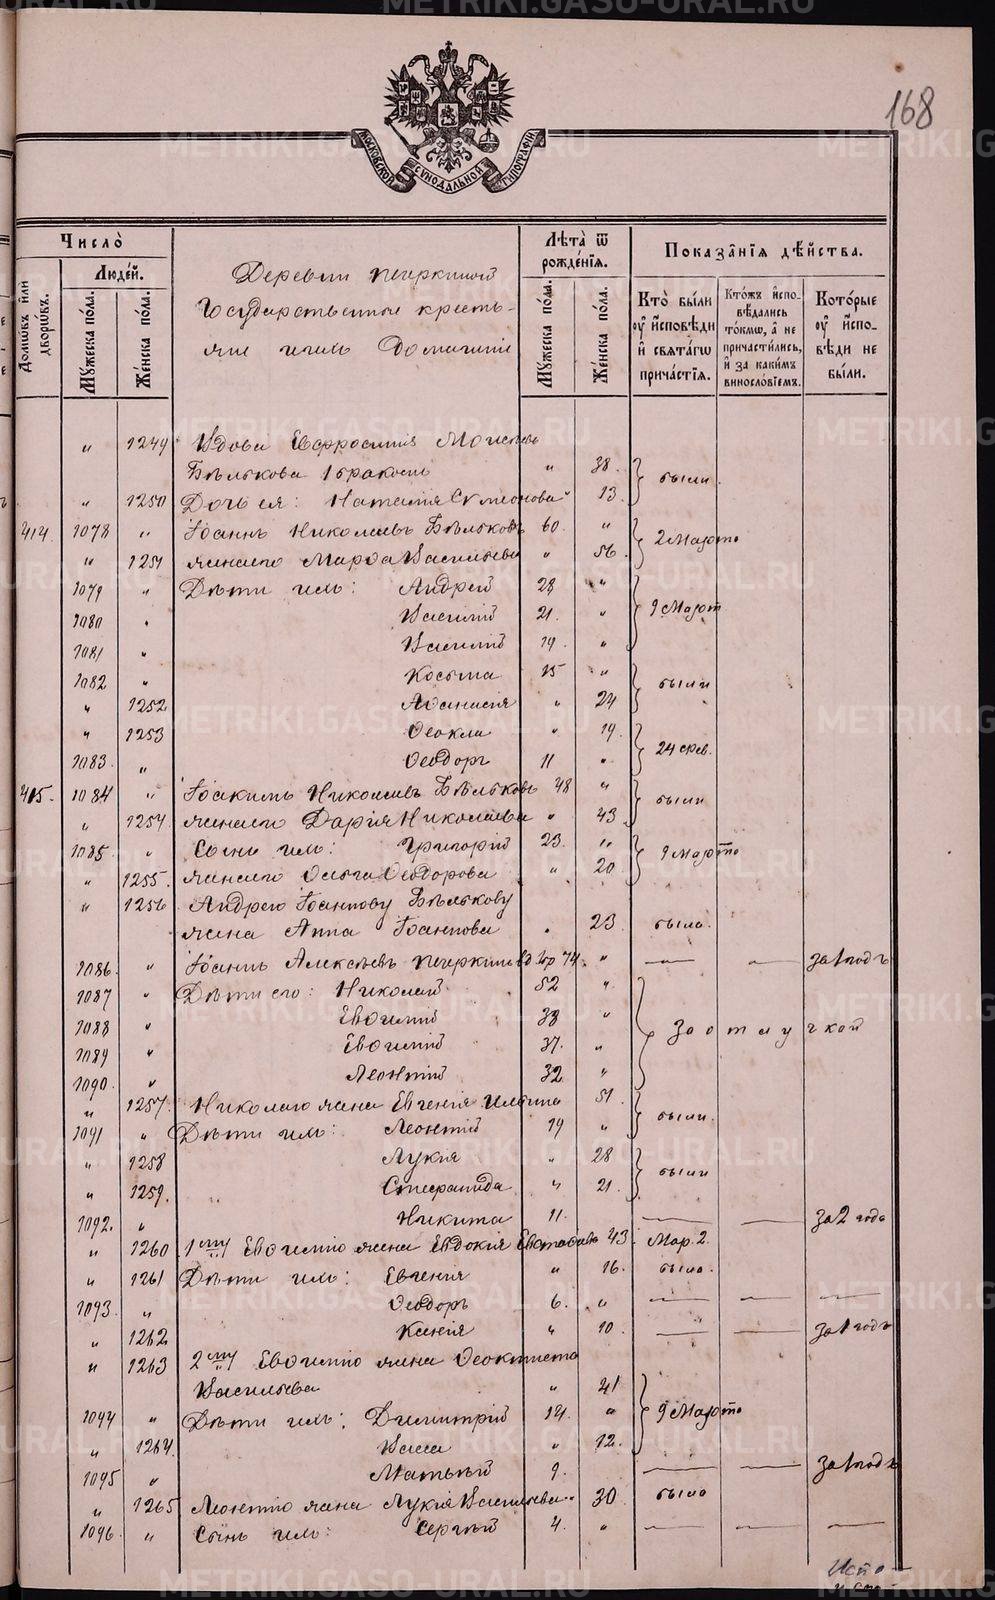 METRIKI.GASO-URAL.RU
168
МОСКОВСКОЙ СѴНОДАЛЬНОЙ ТИПОГРАФІИ
Число̀
Домѡ́въ и҆лѝ дворѡ́въ.
Люде́й.
Мꙋ́жеска по́ла.
Же́нска по́ла.
Деревни
Государственные кресть-
яне и ихъ домашніе
Лѣ́та ѿ рожде́нїѧ.
Мꙋ́жеска по́ла.
Же́нска по́ла.
Показа̑нїѧ дѣ́йства.
Кто̀ бы́ли ᲂу҆ и҆сповѣ́ди и҆ свѧта́гѡ прича́стїѧ.
Кто́жъ и҆спо-вѣ́дались то́кмѡ, а҆ не причасти́лись, и҆ за каки́мъ винослѡ́вїемъ.
Кото́рые ᲂу҆ и҆спо-вѣ́ди не бы́ли.
" 1249 Вдова Евфросинія Моисѣева
Бѣлькова " 38. были.
" 1250 Дочь ея: Наталія Сѵмеонова " 13.
414. 1078 " Іоаннъ Николаевъ Бѣльковъ 60. " 2 Марта
" 1251 жена его Марѳа Васильева " 56.
1079 " Дѣти ихъ: Андрей 28 " 9 Март
1080 " Василій 21. "
1081 " Василій 19. "
1082 " Косьма 15 " были
" 1252 Аѳанасія " 24
" 1253 Ѳекла " 19. 24 фев.
1083. " Ѳеодоръ 11 "
415. 1084 " Іоакимъ Николаевъ Бѣльковъ 48 " были
" 1254 жена его Дарія Николаева " 43.
1085. " Сынъ ихъ: Григорій 23. " 9 Марта
" 1255. жена его Ольга Ѳеодорова " 20
" 1256 Андрею Іоаннову Бѣлькову
жена Анна Іоаннова " 23 была.
1086. " Іоаннъ Алексѣевъ 74. " — — за 1 годъ
1087 " Дѣти его: Николай 52 " За отлучкой
1088 " Евѳимій 38 "
1089 " Евѳимій 37. "
1090. " Леонтій 32 "
" 1257. Николаю жена Евгенія Ильина 51. были.
1091 " Дѣти ихъ: Леонтій 19 "
" 1258 Лукія " 28 были
" 1259. Стефанида " 21.
1092. " Никита 11. — — за 2 годъ
" 1260. 1му Евѳимію жена Евдокія 43. Мар. 2.
" 1261 Дѣти ихъ: Евгенія " 16. была.
1093. " Ѳеодоръ 6. " — — —
" 1262 Ксенія " 10. — — за 1 годъ
" 1263 2му Евѳимію жена Ѳеоктиста
Васильева " 41 9 Марта
1094 " Дѣти ихъ: Димитрій 14. "
" 1264. " 12.
1095 " Матѳей 9. — — за 1 годъ
" 1265 Леонтію жена Лукія Васильева " 30 была
1096. " Сынъ ихъ: Сергѣй 4. " — — —
Испо-